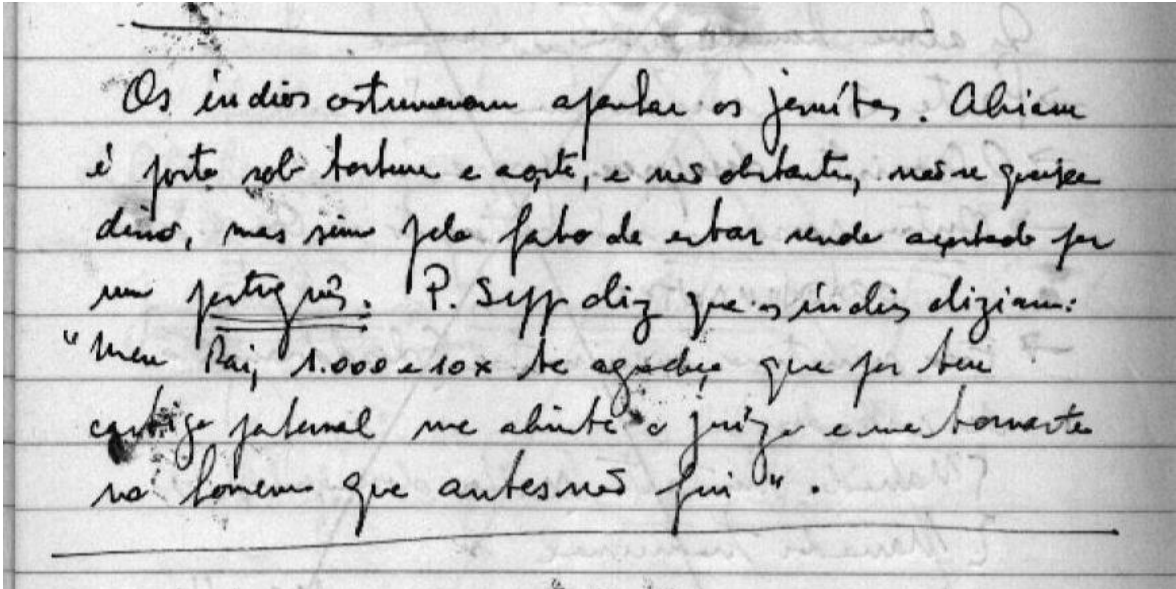 Os índios costumavam apanhar os jesuítas. Abriam
é porta sob tortura e açoite, e não obstante, não se queixa
disso, mas sim pelo fato de estar sendo açoitado por
um português. P. Sepp diz que os índios diziam:
"Meu Pai, 1.000 e 10x te agradeço que por teu
castigo paternal me abriste o juízo e me tornaste
no homem que antes não fui".